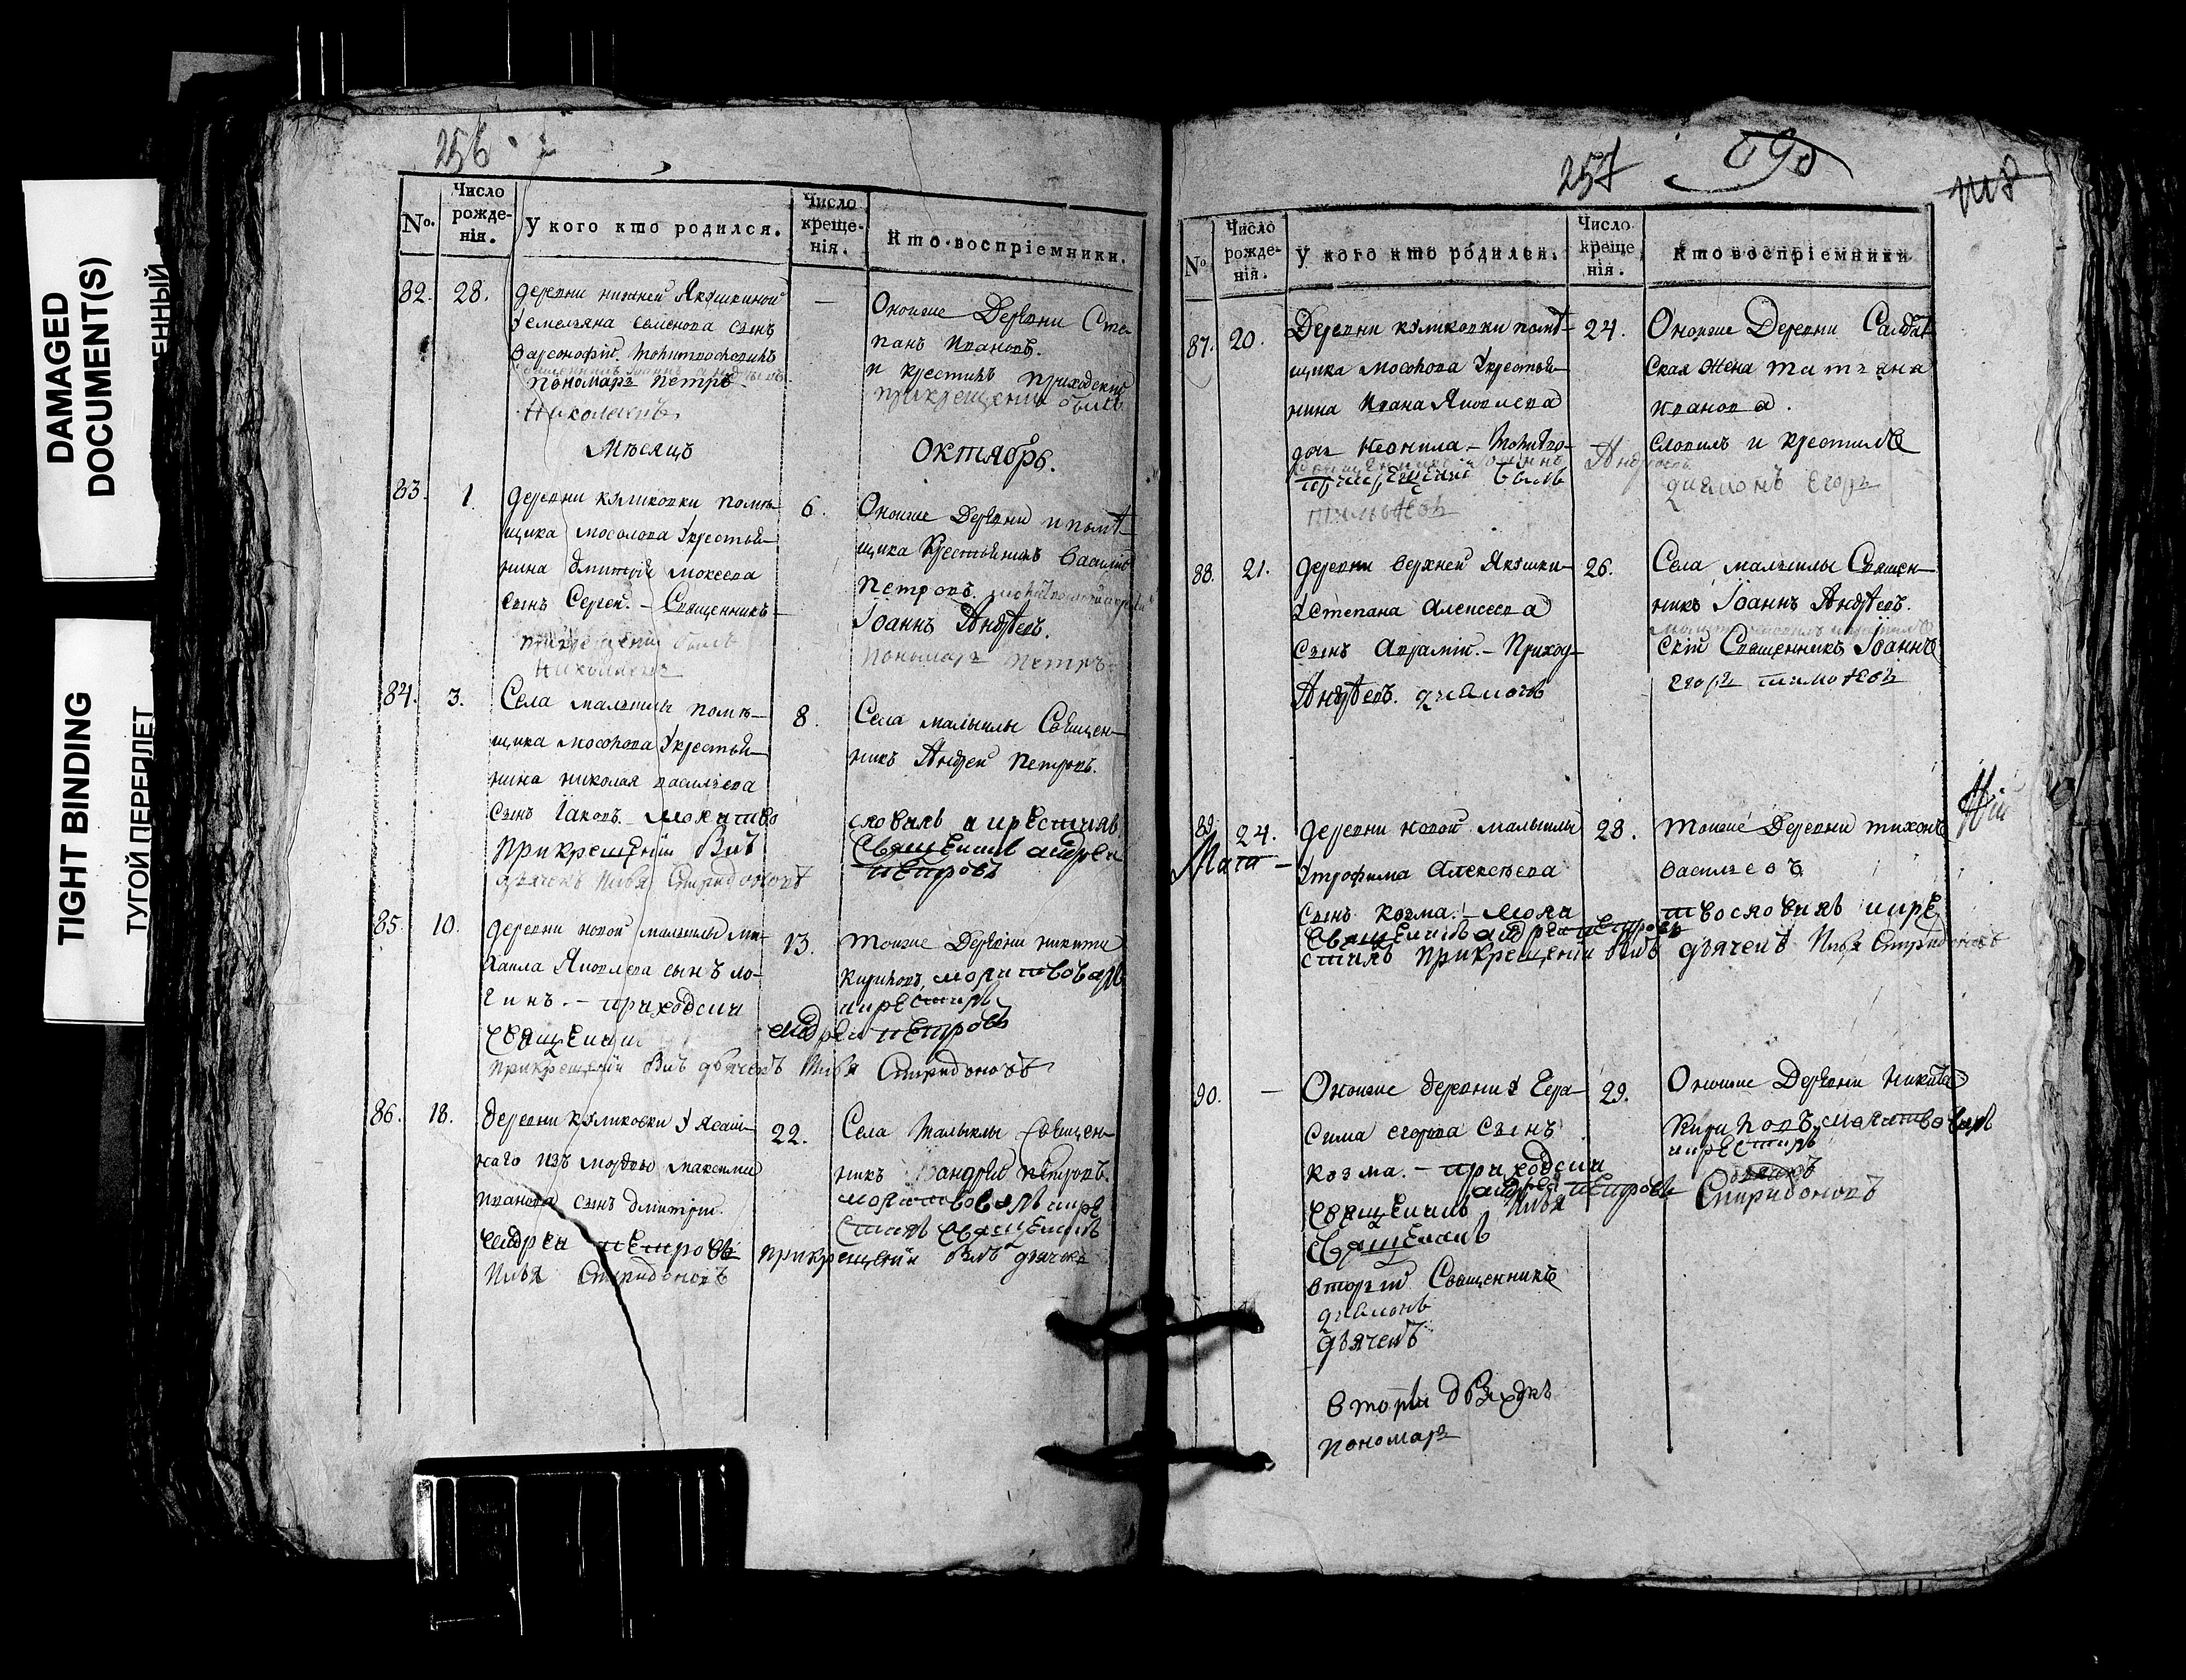 DAMAGED
DOCUMENT(S)
TIGHT BINDING
ТУГОЙ ПЕРЕПЛЕТ
256
No.
Число рожде-нія.
У кого кто родился.
Число креще-нія.
Кто воспріемники.
82. 28.
деревни нижней Якушкиной
Уемельяна Семенова сынъ
Варсонофій.
пономарь петръ
Николаевъ
Оноиже Деревни Сте-
панъ Ивановъ.
и крестилъ приходскій
прикрещеніи былъ
Мѣсяцъ Октябрь.
83. 1.
деревни куликовки помѣ-
щика мосолова Укрестья-
нина дмитрія мокеева
сынъ Сергей. - Священникъ
прикрещеніи былъ
Николаевъ
6.
Оноиже Деревни и помѣ-
щика крестьянинъ василій
Петровъ.
Іоаннъ Андреевъ.
Пономарь Петръ
84. 3.
Села малыклы помѣ-
щика мосолова Укрестья-
нина николая васильева
сынъ Іаковъ. - молитво
прикрещеніи былъ
дьячекъ Илья Спиридоновъ
8.
Села малыклы Священ-
никъ Андрей Петровъ.
словилъ и крестилъ
Священникъ андреи
петровъ
85. 10.
деревни новой малыклы ми-
хаила Яковлева сынъ ло-
гинъ. - приходски
священникъ
прикрещеніи былъ дьячекъ Илья Спиридоновъ
13.
тоиже Деревни никита
Кириловъ молитвовалъ
и крестилъ
андреи петровъ
86. 18.
деревни куликовки У ясаш-
наго изъ мордвы максима
иванова сынъ дмитрій.
андреи петровъ
Илья Спиридоновъ
22.
Села Малыклы Священ-
никъ андрей петровъ.
молитвовалъ и кре
стилъ священникъ
прикрещеніи былъ дьячекъ
257
No
Число рожде-нія.
У кого кто родился.
Число креще нія.
Кто воспріемники
87. 20.
Деревни куликовки помѣ-
щика мосолова Укрестья-
нина Ивана Яковлева
дочь Неонила. - молитво-
прикрещеніи былъ
тимофеевъ
24.
Оноиже Деревни Салдат
ская жена татьяна
иванова.
словилъ и крестилъ
Андреевъ.
диаконъ Егоръ
88. 21.
деревни верхней Якушки-
Устепана Алексеева
сынъ Аврамій. - Приход-
Андреевъ. диаконъ
26.
Села малыклы Священ-
никъ Іоаннъ Андреевъ.
скій Священникъ Іоаннъ
Егоръ тимофеевъ
89. 24.
деревни новой малыклы
Утрофима Алексеева
сынъ козма. - моли
священникъ андреи петровъ
стилъ прикрещеніи былъ дьячекъ Илья Спиридоновъ
28.
тоиже Деревни тихонъ
васильевъ
твословилъ и кре
90. -
Оноиже деревни У Гера-
сима егорова сынъ
козма. - приходски
андреи петровъ
священникъ Илья
Священникъ
второй Священникъ
диаконъ
дьячекъ
пономарь
29.
Оноиже Деревни никита
Кириловъ молитвовалъ
и крестилъ
Спиридоновъ